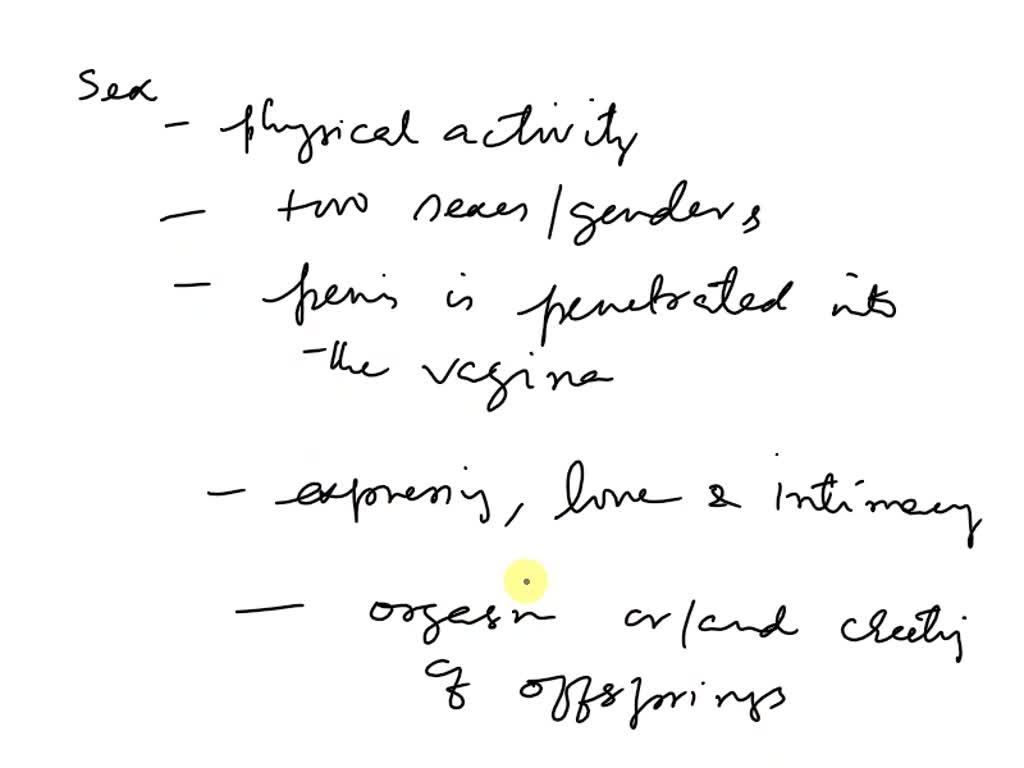 Sex
- physical activity
- two sexes/genders
- penis is penetrated into
the vagina
- expressing, love & intimacy
- orgasm or/and creating
of offsprings